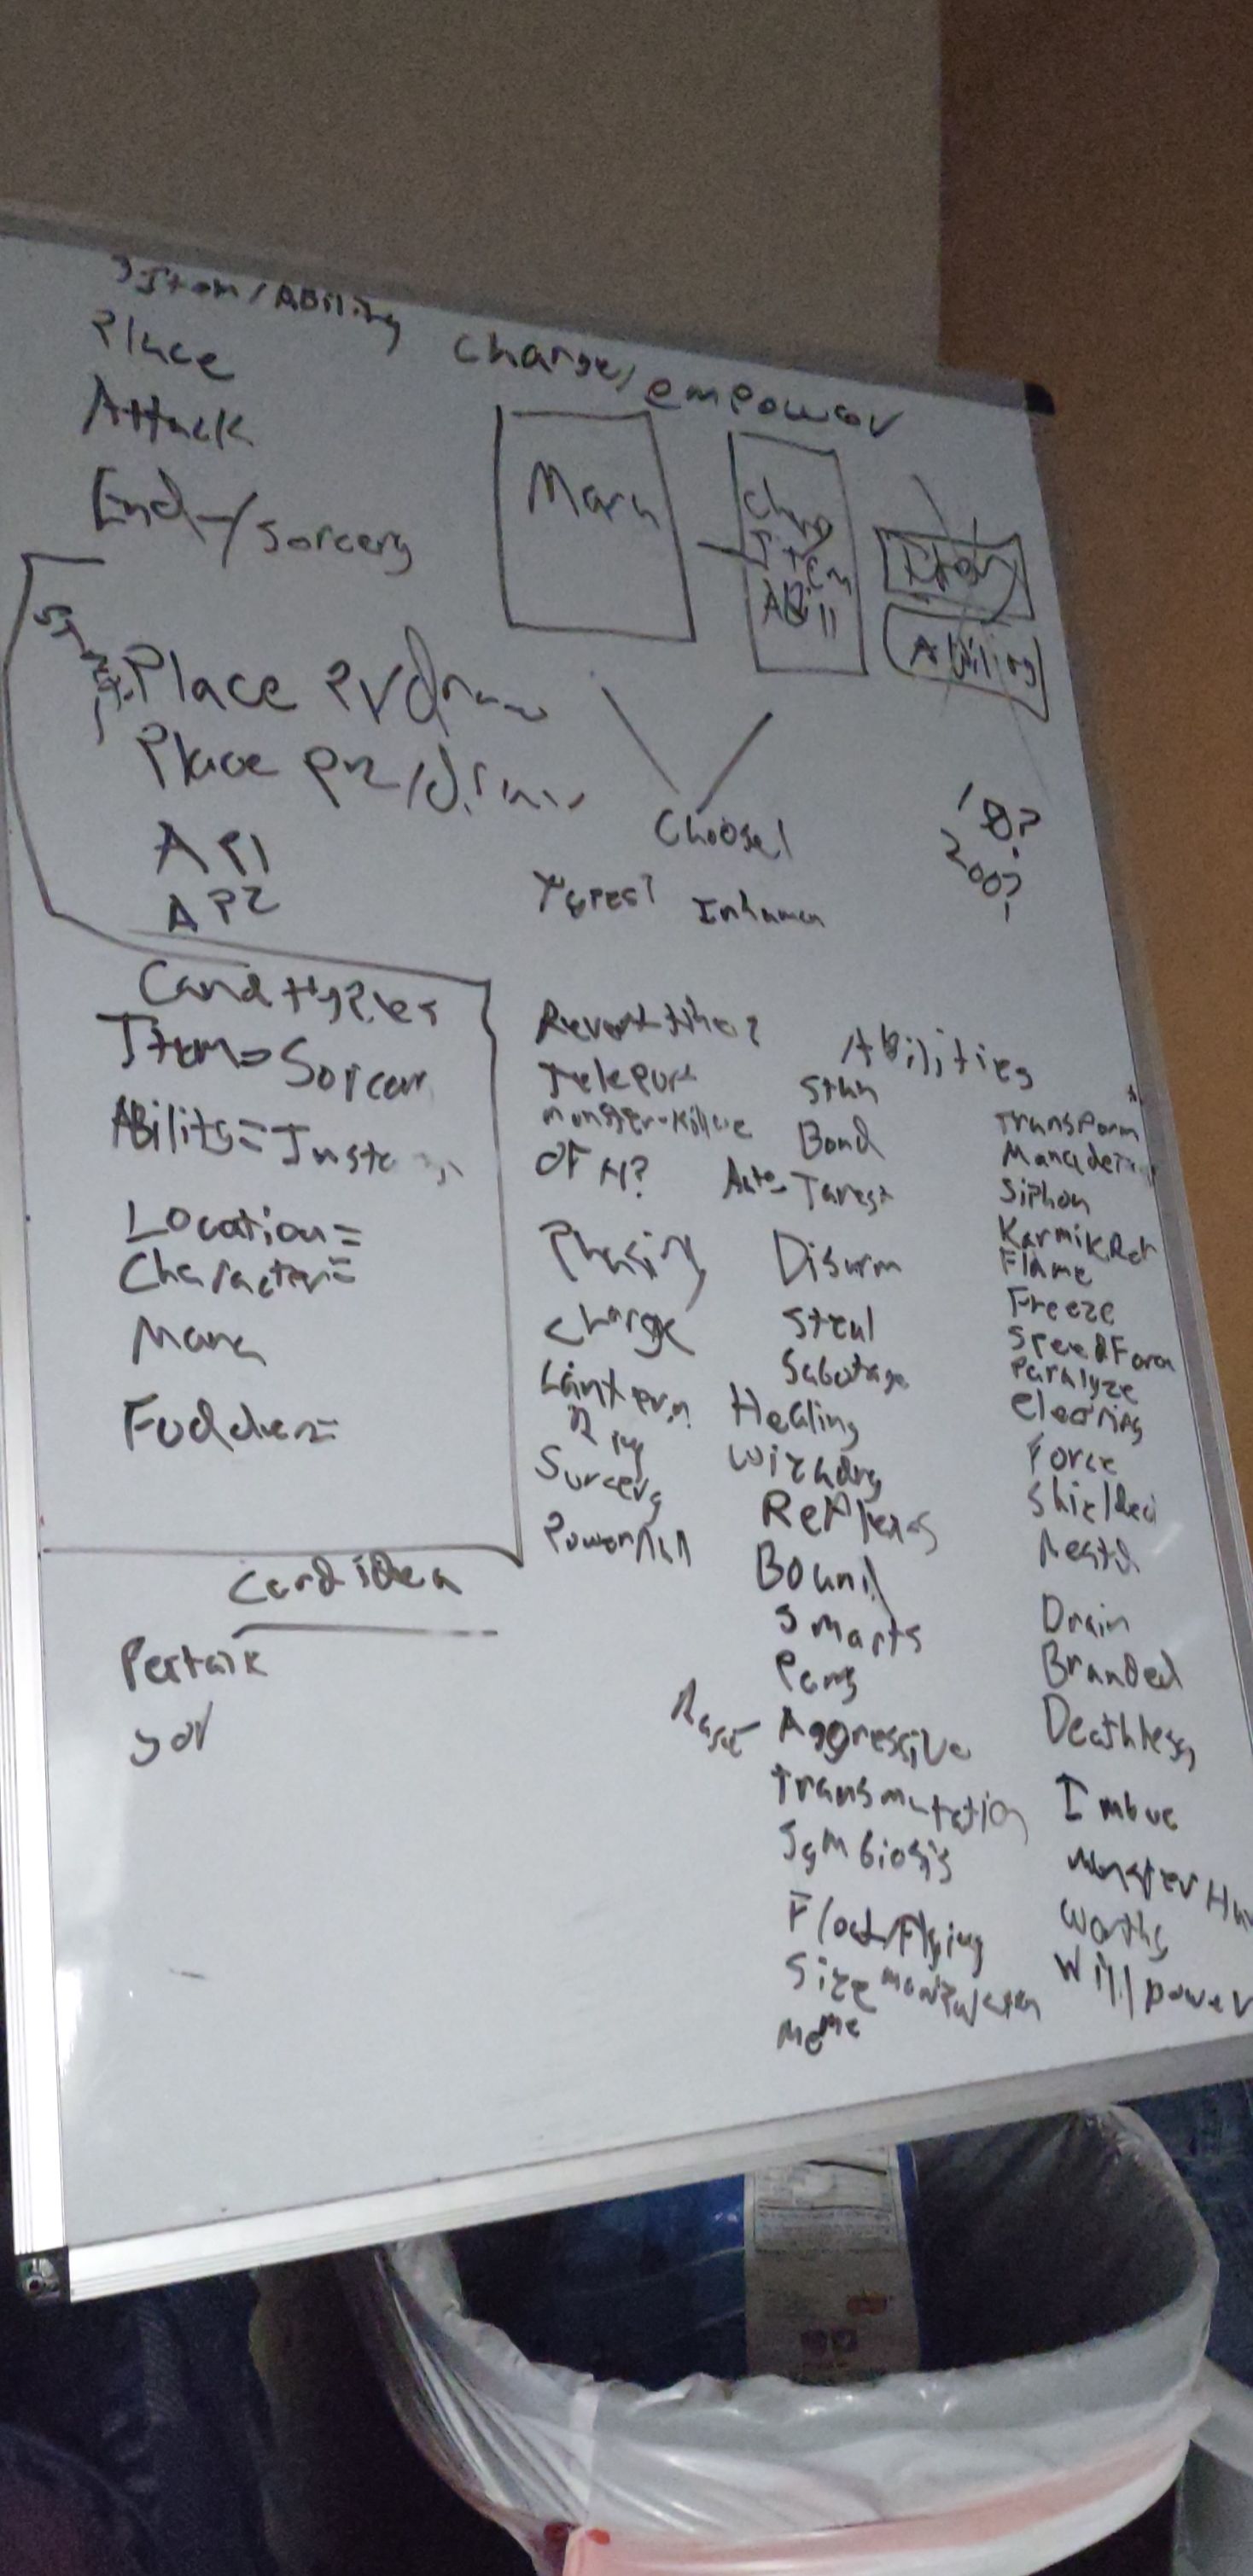 Item/Ability
Place
Attack
End-/sorcery
Charge/empower
Mana
Item
Abill
Item
Ability
Place
Place
AP1
AP2
Choose1
200?
Types? Inhuman
Card types
Item=Sorcer
Ability=Insta
Location=
Character=
Mana
Fodder=
Card idea
Revert time?
Teleport
monster-killue
OF M?
Phasing
Charge
Lantern
Ring
Sorcery
Powernull
Abilities
Stun
Bond
Auto-Target
Disarm
Steal
Sabotage
Healing
wizadry
Reflexes
Bound
Smarts
Rage-Aggressive
transmutation
Symbiosis
Float/Flying
Size manipulation
meme
Transform
Siphon
Karmik Ret
Flame
Freeze
SpeedForce
Paralyze
Force
Shielded
Drain
Branded
Deathless
Imbue
Monster Hun
Worthy
Willpower